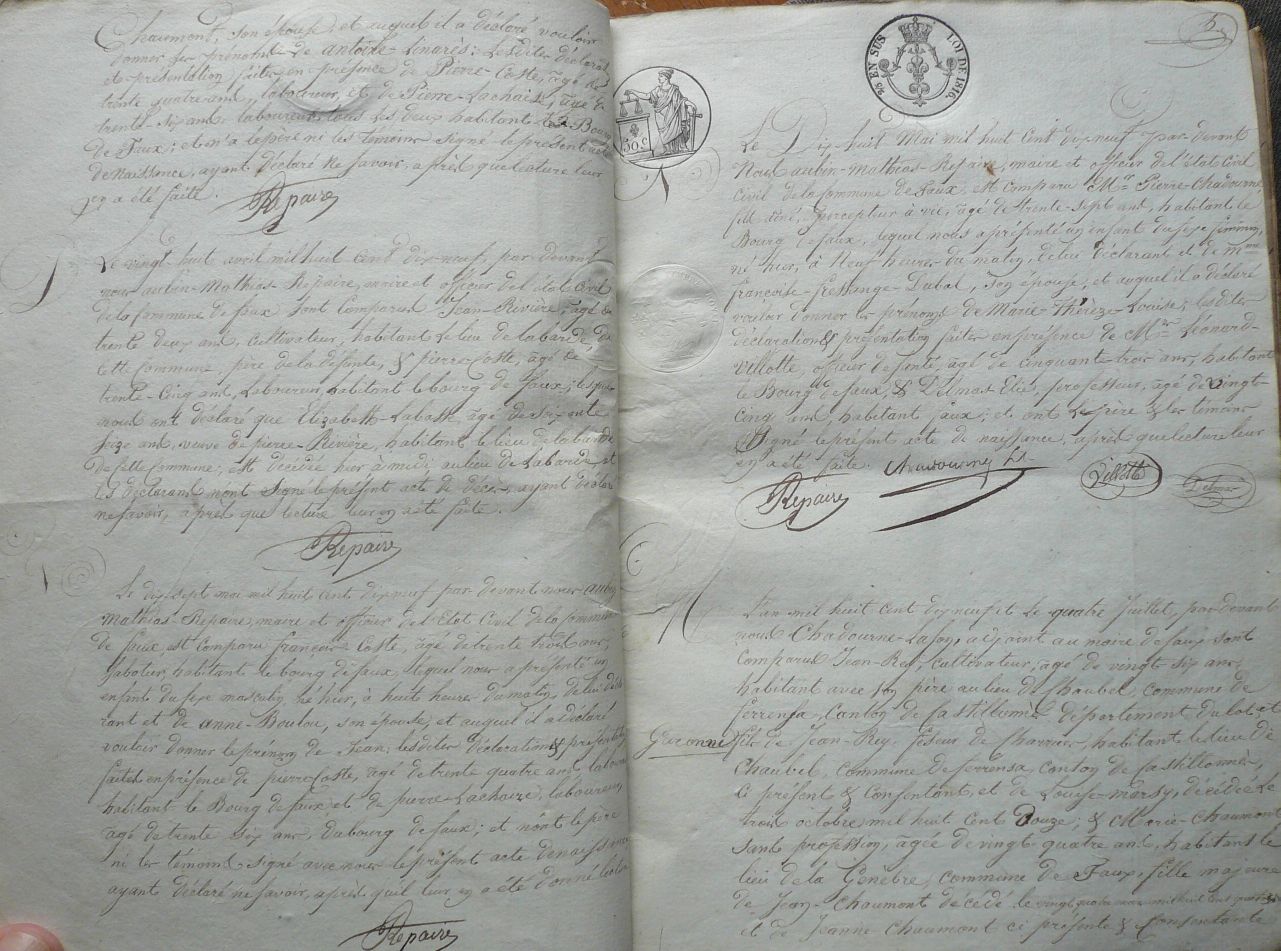 Chaumont, son épouse; et auquel il a déclaré vouloir
donner les prénoms de antoine-Linarès; Lesdites déclarat
et présentation faites en présence de Pierre-Coste, âgé de
trente quatre ans, laboureur, et de Pierre-Lachaise, âgé de
trente-six ans laboureur, tous les deux habitant le Bourg
de Faux; et n'a le père ni les témoins signé le présent acte
de Naissance, ayant déclaré ne savoir, après que lecture leur
en a été faite
Repaire
Le vingt huit avril mil huit Cent dix-neuf, par devant
nous aubin-Mathias-Repaire, maire et officier de l'état Civil
de la Commune de faux sont Comparus Jean-Rivière, âgé de
trente deux ans, Cultivateur, habitant le lieu de labarde, de
Cette Commune, père de la défunte, & pierre-Coste, âgé de
trente-Cinq ans, Laboureur, habitant le bourg de faux; lesquels
nous ont déclaré que Elizabeth-Labatt, âgé de soixante
seize ans, veuve de pierre-Rivière, habitant le lieu de labarde
de Cette Commune, est décédée hier à midi au lieu de Labarde, et
les déclarans n'ont signé le présent acte de décès, ayant déclaré
ne savoir, après que lecture leur en a été faite.
Repaire
Le dix sept mai mil huit Cent dix neuf par devant nous aubin
Mathias-Repaire, maire et officier de l'Etat Civil de la Commune
de faux, est comparu françois-Coste, âgé de trente trois ans,
Sabotier, habitant le bourg de faux, lequel nous a présenté un
enfant du sexe masculin, né hier, à huit heures du matin, de lui décla
rant et de anne-Boulou, son épouse, et auquel il a déclaré
vouloir donner le prénom de Jean; lesdites déclaration & présentation
faites en présence de pierre Coste, âgé de trente quatre ans, laboureur
habitant le Bourg de faux et de pierre-Lachaize, laboureur,
âgé de trente six ans, du bourg de faux; et n'ont le père
ni les témoins signé avec nous le présent acte de naissance
ayant déclaré ne savoir, après qu'il leur en a été donné lecture
Repaire
25 EN SUS LOI DE 1816.
50 c
5
Le Dix huit Mai mil huit Cent dix neuf, par devant
Nous aubin-Mathias-Repaire, maire et officier de l'état Civil
Civil de la Commune de Faux, est comparu Mr Pierre-Chadourne,
fils ainé, percepteur à vie, âgé de trente-sept ans, habitant le
Bourg de faux, lequel nous a présenté un enfant du sexe féminin,
né hier, à Neuf heures du matin, de lui déclarant et de Mme
françoise- Dubal, son épouse, et auquel il a déclaré
vouloir donner les prénoms de Marie-Thérèze-Louise; lesdites
déclaration & présentation faites en présence de Mr Léonard-
Villotte, officier de santé, âgé de cinquante trois ans, habitant
le Bourg de faux, & Delmas-Elie, professeur, âgé de vingt-
Cinq ans, habitant aux; et ont Le père & les témoins
Signé le présent acte de naissance, après que lecture leur
en a été faite.
Chadourne
Repaire
Villotte
Delmas
L'an mil huit Cent dix neuf et le quatre Juillet, par devant
nous Chadourne-Lafon, adjoint au maire de faux sont
Comparus Jean-Rey, Cultivateur, âgé de vingt six ans,
habitant avec son père au lieu de Chaubel, commune de
ferrensa, Canton de Castillonnès, département du lot-et
Garonne, fils de Jean-Rey, feseur de Charrues, habitant le lieu de
Chaubel, Commune de ferrensa, Canton de Castillonnès,
Ci présent & Consentant, et de Louise-Marsy, décédée le
trois octobre mil huit Cent Douze; & Marie-Chaumont
sans profession, âgée de vingt quatre ans, habitant le
lieu de la Genèbre, Commune de Faux, fille majeure
de Jean-Chaumont décédé le vingt
et de Jeanne Chaumont ci présente & Consentante